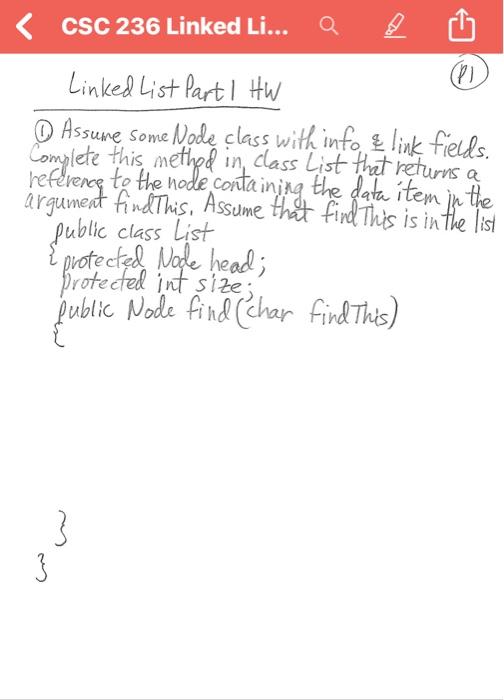 CSC 236 Linked Li...
P1
Linked List Part 1 HW
① Assume some Node class with info & link fields.
Complete this method in class List that returns a
reference to the node containing the data item in the
argument findThis. Assume that findThis is in the list
public class List
{ protected Node head;
protected int size;
public Node find (char findThis)
{
}
}